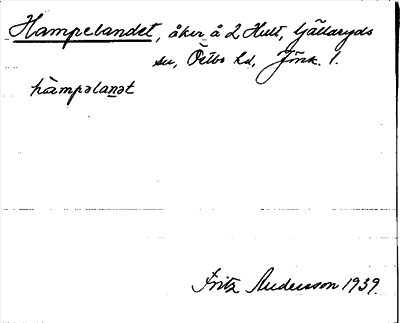 Hampelandet, åker å 2 Hult, Gällaryds
sn, Östbo hd, Jönk. l.
hàmpəlanət
Fritz Andersson 1939.